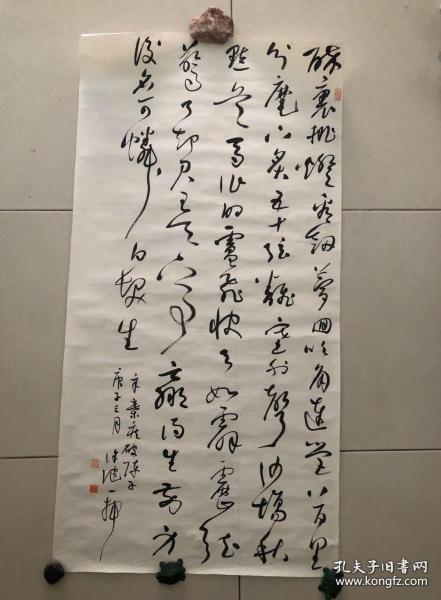 醉裏挑燈看劍夢回吹角連營八百里
分麾下炙五十弦翻塞外聲沙場秋
點兵馬作的盧飛快弓如霹靂弦
驚了却君王天下事贏得生前身
後名可憐白髮生
辛棄疾破陣子
庚子三月
孔夫子旧书网
www.kongfz.com